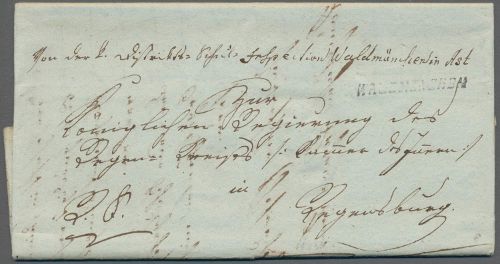 Von der k. Districts-Schul-Inspection Waldmünchen in Ast
WALDMÜNCHEN
Zur
Königlichen Regierung des
Regen-Kreises /: Kammer des Innern :/
in
R. S.
Regensburg.